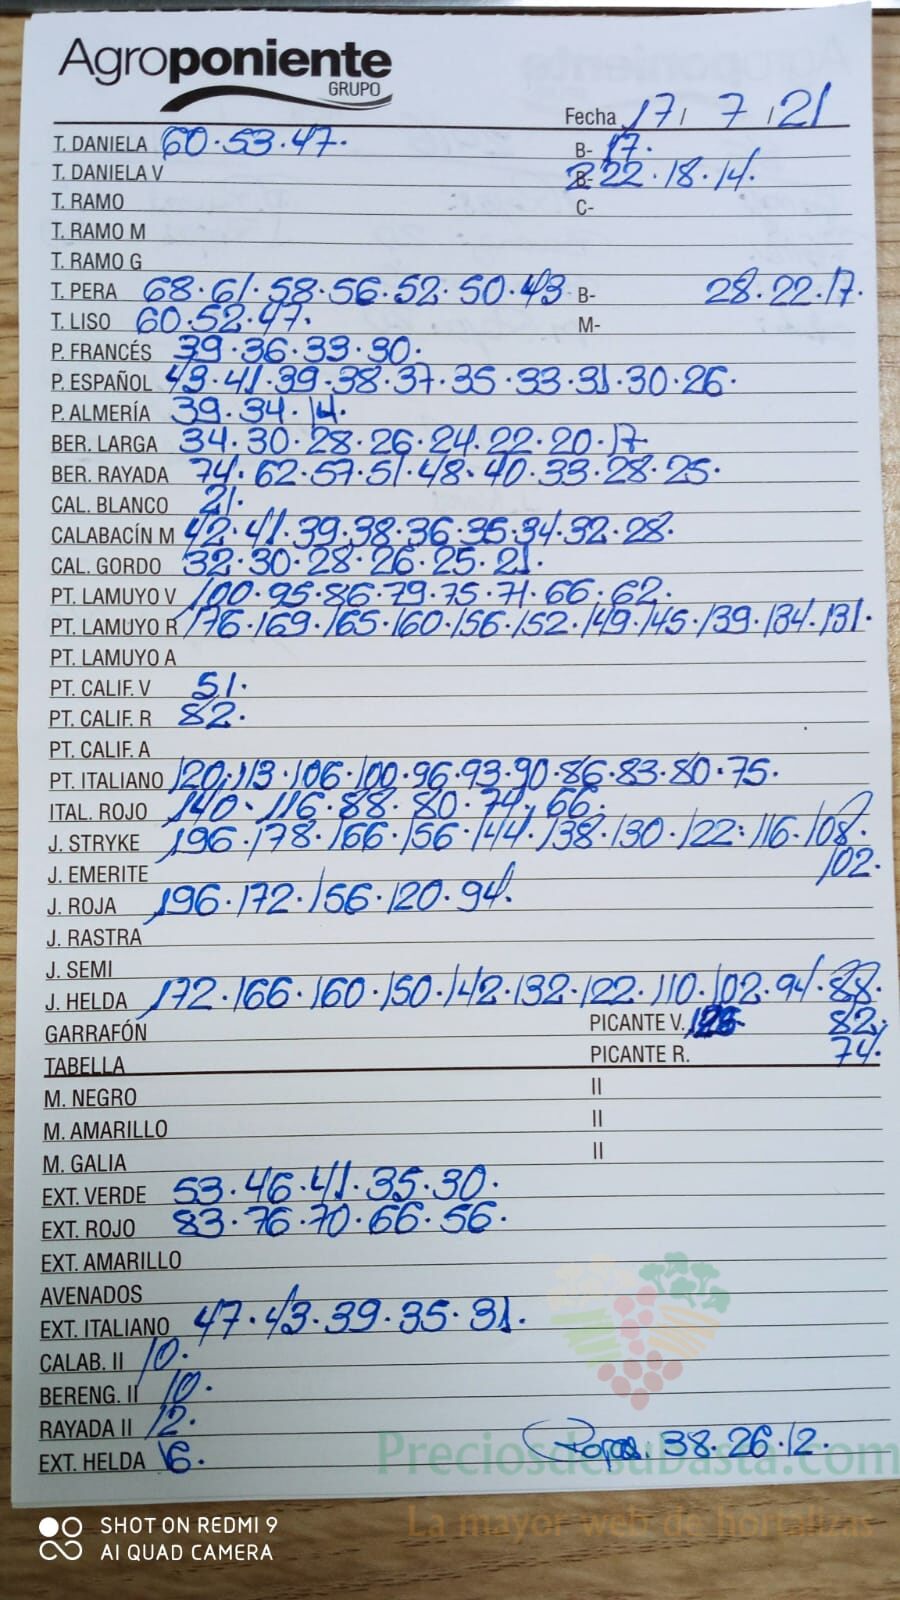 Agroponiente
GRUPO
Fecha 17 / 7 / 21
T. DANIELA 60·53·47· B- 17·
T. DANIELA V B- 22·18·14·
T. RAMO C-
T. RAMO M
T. RAMO G
T. PERA 68·61·58·56·52·50·43 B- 28·22·17·
T. LISO 60·52·47· M-
P. FRANCÉS 39·36·33·30·
P. ESPAÑOL 43·41·39·38·37·35·33·31·30·26·
P. ALMERÍA 39·34·14·
BER. LARGA 34·30·28·26·24·22·20·17·
BER. RAYADA 74·62·57·51·48·40·33·28·25·
CAL. BLANCO 21·
CALABACÍN M 42·41·39·38·36·35·34·32·28·
CAL. GORDO 32·30·28·26·25·21·
PT. LAMUYO V 100·95·86·79·75·71·66·62·
PT. LAMUYO R 176·169·165·160·156·152·149·145·139·134·131·
PT. LAMUYO A
PT. CALIF. V 51·
PT. CALIF. R 82·
PT. CALIF. A
PT. ITALIANO 120·113·106·100·96·93·90·86·83·80·75·
ITAL. ROJO 140·116·88·80·74·66·
J. STRYKE 196·178·166·156·144·138·130·122·116·108·
J. EMERITE 102·
J. ROJA 196·172·156·120·94·
J. RASTRA
J. SEMI
J. HELDA 172·166·160·150·142·132·122·110·102·94·88·
GARRAFÓN PICANTE V. 82·
TABELLA PICANTE R. 74·
M. NEGRO II
M. AMARILLO II
M. GALIA II
EXT. VERDE 53·46·41·35·30·
EXT. ROJO 83·76·70·66·56·
EXT. AMARILLO
AVENADOS
EXT. ITALIANO 47·43·39·35·31·
CALAB. II 10·
BERENG. II 10·
RAYADA II 12·
EXT. HELDA 6· 38·26·12·
Preciosdesubasta.com
La mayor web de hortalizas
SHOT ON REDMI 9
AI QUAD CAMERA